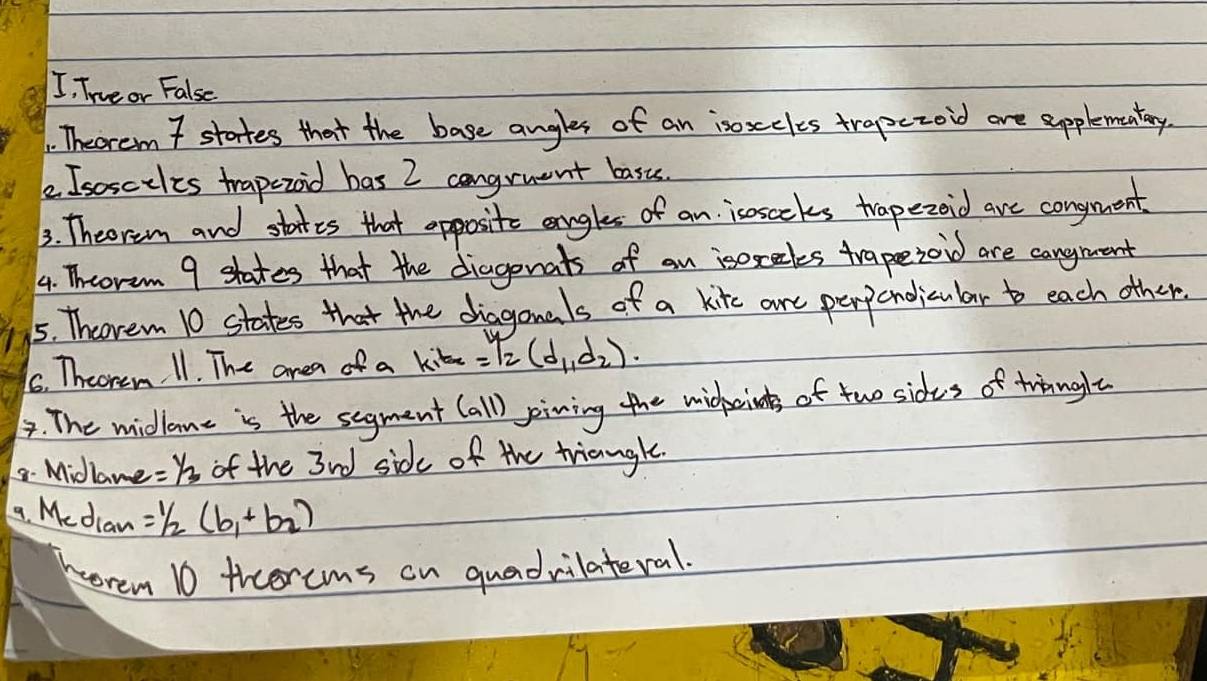 I. True or False
1. Theorem 7 states that the base angles of an isosceles trapezoid are supplementary.
2. Isosceles trapezoid has 2 congruent bases.
3. Theorem and states that opposite angles of an isosceles trapezoid are congruent.
4. Theorem 9 states that the diagonals of an isosceles trapezoid are congruent
5. Theorem 10 states that the diagonals of a kite are perpendicular to each other.
6. Theorem 11. The area of a kite = 1/2 (d1,d2).
7. The midlane is the segment (all) joining the midpoints of two sides of triangle
8. Midlane = 1/2 of the 3rd side of the triangle.
9. Median = 1/2 (b1 + b2)
Theorem 10 theorems on quadrilateral.